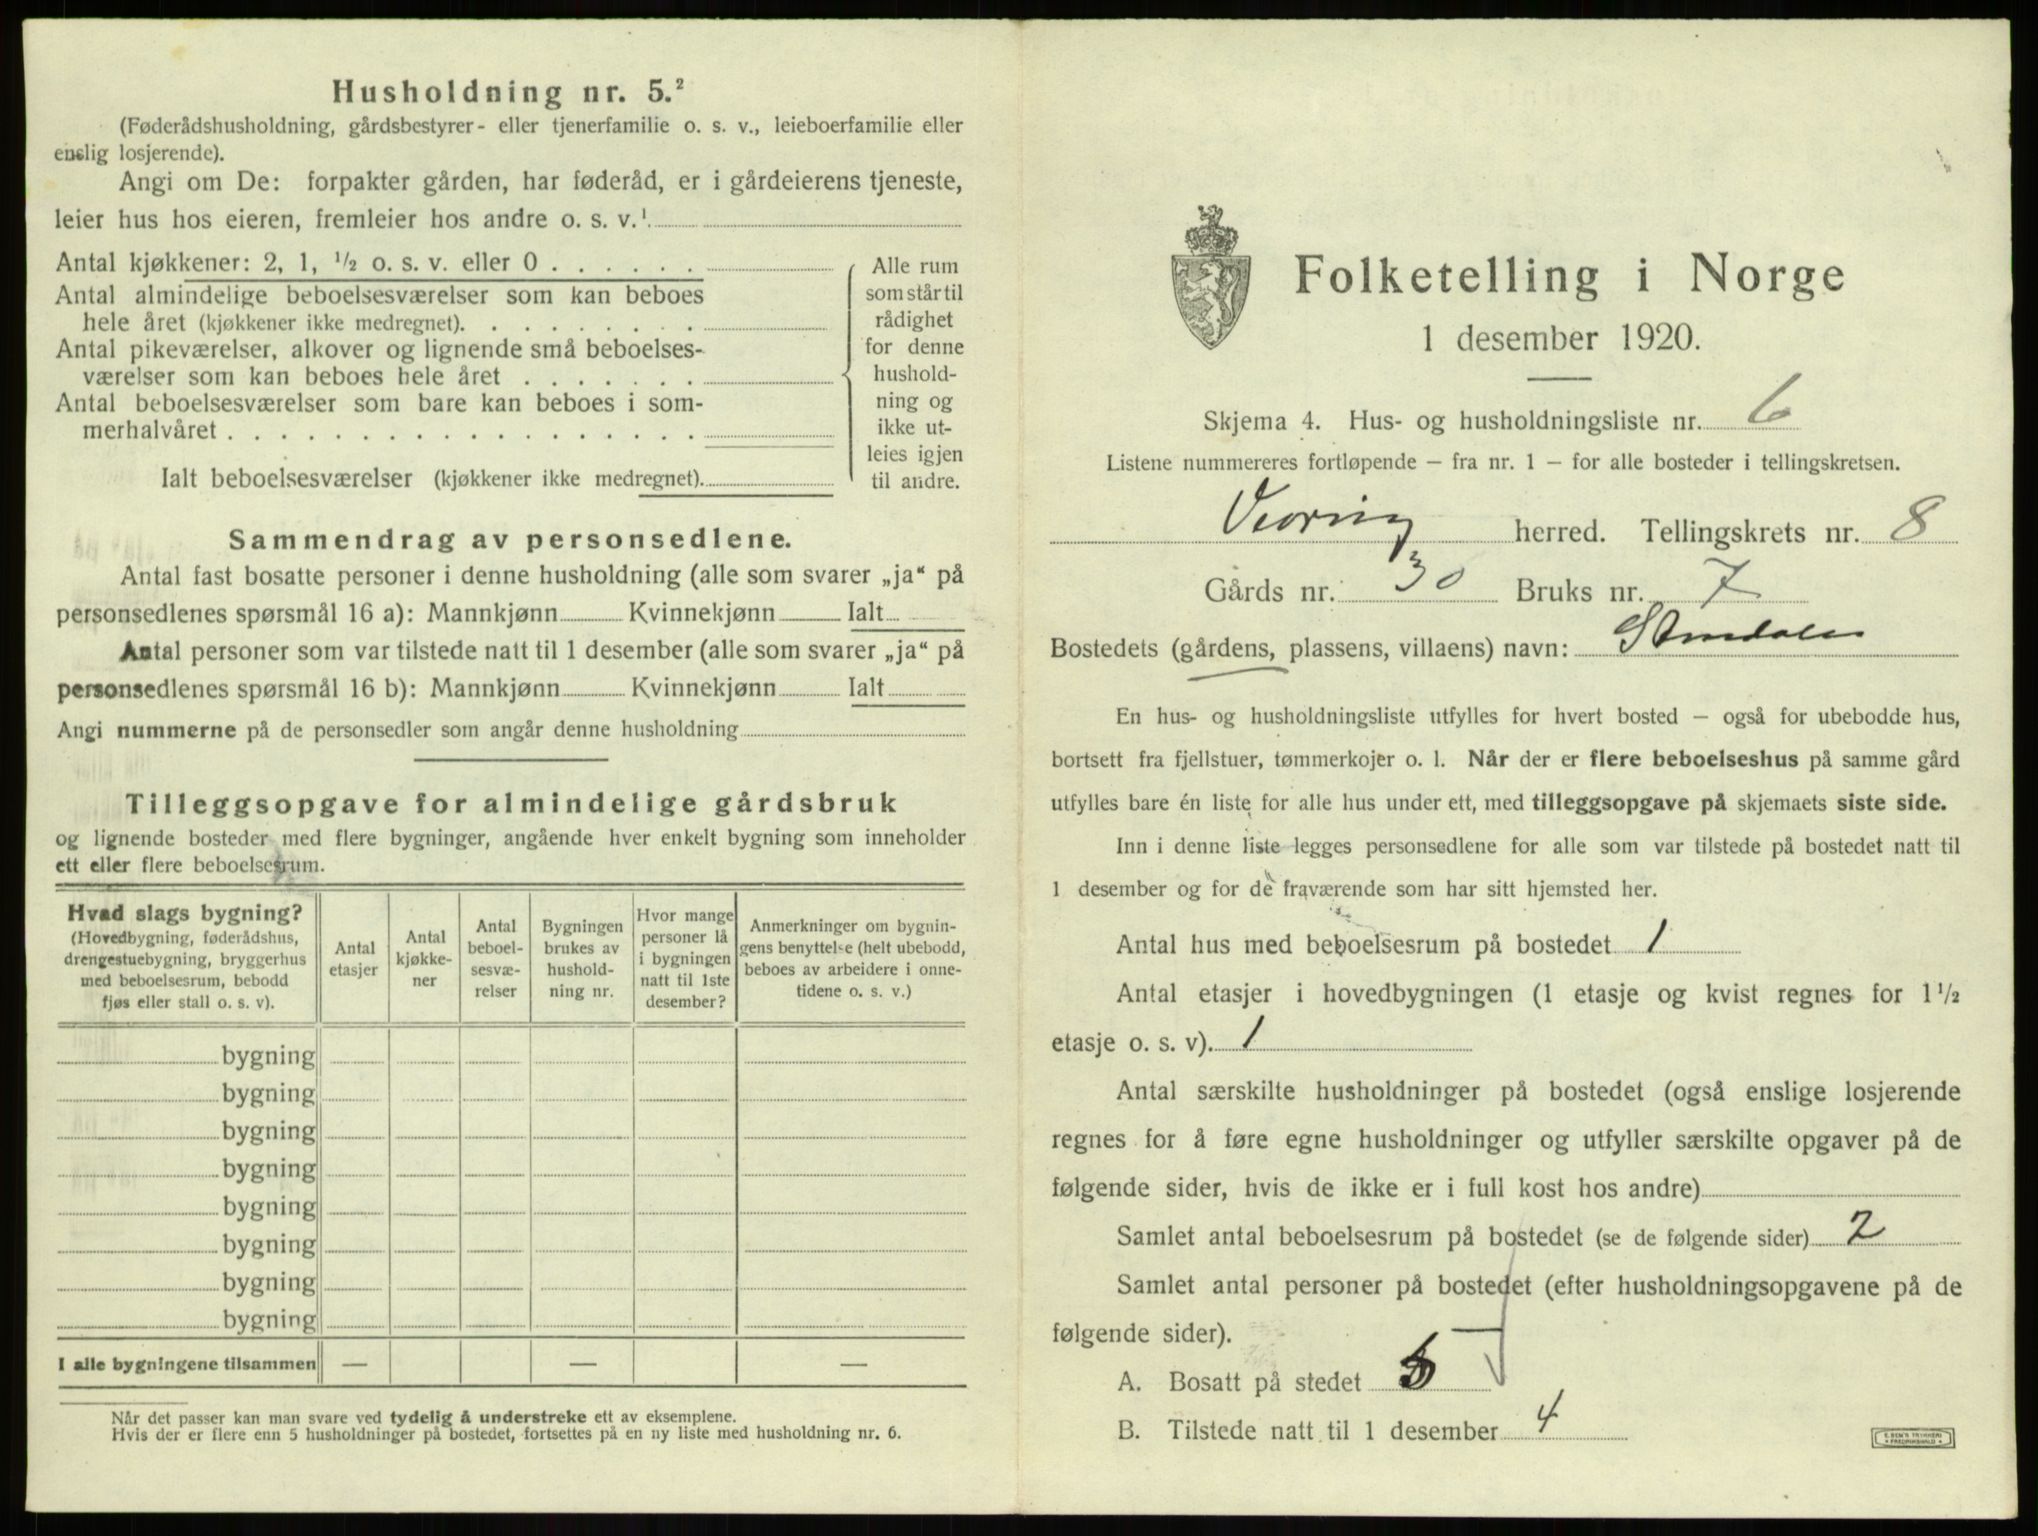 Husholdning nr. 5.²
(Føderådshusholdning, gårdsbestyrer- eller tjenerfamilie o. s. v., leieboerfamilie eller
enslig losjerende).
Angi om De: forpakter gården, har føderåd, er i gårdeierens tjeneste,
leier hus hos eieren, fremleier hos andre o. s. v.¹
Antal kjøkkener: 2, 1, ½ o. s. v. eller 0 . . . . . .
Antal almindelige beboelsesværelser som kan beboes
hele året (kjøkkener ikke medregnet). . . . . . . . .
Antal pikeværelser, alkover og lignende små beboelses-
værelser som kan beboes hele året . . . . . . .
Antal beboelsesværelser som bare kan beboes i som-
merhalvåret . . . . . . . . . . . . . . . . . .
Ialt beboelsesværelser (kjøkkener ikke medregnet).
Alle rum
som står til
rådighet
for denne
hushold-
ning og
ikke ut-
leies igjen
til andre.
Sammendrag av personsedlene.
Antal fast bosatte personer i denne husholdning (alle som svarer „ja“ på
personsedlenes spørsmål 16 a): Mannkjønn Kvinnekjønn Ialt
Antal personer som var tilstede natt til 1 desember (alle som svarer „ja“ på
personsedlenes spørsmål 16 b): Mannkjønn Kvinnekjønn Ialt
Angi nummerne på de personsedler som angår denne husholdning
Tilleggsopgave for almindelige gårdsbruk
og lignende bosteder med flere bygninger, angående hver enkelt bygning som inneholder
ett eller flere beboelsesrum.
Hvad slags bygning?
(Hovedbygning, føderådshus,
drengestuebygning, bryggerhus
med beboelsesrum, bebodd
fjøs eller stall o. s. v).
Antal
etasjer
Antal
kjøkke-
ner
Antal
beboel-
sesvæ-
relser
Bygningen
brukes av
hushold-
ning nr.
Hvor mange
personer lå
i bygningen
natt til 1ste
desember?
Anmerkninger om bygnin-
gens benyttelse (helt ubebodd,
beboes av arbeidere i onne-
tidene o. s. v.)
bygning
bygning
bygning
bygning
bygning
bygning
bygning
bygning
I alle bygningene tilsammen — — —
Når det passer kan man svare ved tydelig å understreke ett av eksemplene.
Hvis der er flere enn 5 husholdninger på bostedet, fortsettes på en ny liste med husholdning nr. 6.
Folketelling i Norge
1 desember 1920.
Skjema 4. Hus- og husholdningsliste nr. 6
Listene nummereres fortløpende — fra nr. 1 — for alle bosteder i tellingskretsen.
Vevring herred. Tellingskrets nr. 8
Gårds nr. 30 Bruks nr. 7
Bostedets (gårdens, plassens, villaens) navn:
En hus- og husholdningsliste utfylles for hvert bosted — også for ubebodde hus,
bortsett fra fjellstuer, tømmerkojer o. l. Når der er flere beboelseshus på samme gård
utfylles bare én liste for alle hus under ett, med tilleggsopgave på skjemaets siste side.
Inn i denne liste legges personsedlene for alle som var tilstede på bostedet natt til
1 desember og for de fraværende som har sitt hjemsted her.
Antal hus med beboelsesrum på bostedet 1
Antal etasjer i hovedbygningen (1 etasje og kvist regnes for 1½
etasje o. s. v). 1
Antal særskilte husholdninger på bostedet (også enslige losjerende
regnes for å føre egne husholdninger og utfyller særskilte opgaver på de
følgende sider, hvis de ikke er i full kost hos andre)
Samlet antal beboelsesrum på bostedet (se de følgende sider) 2
Samlet antal personer på bostedet (efter husholdningsopgavene på de
følgende sider).
A. Bosatt på stedet 5
B. Tilstede natt til 1 desember 4